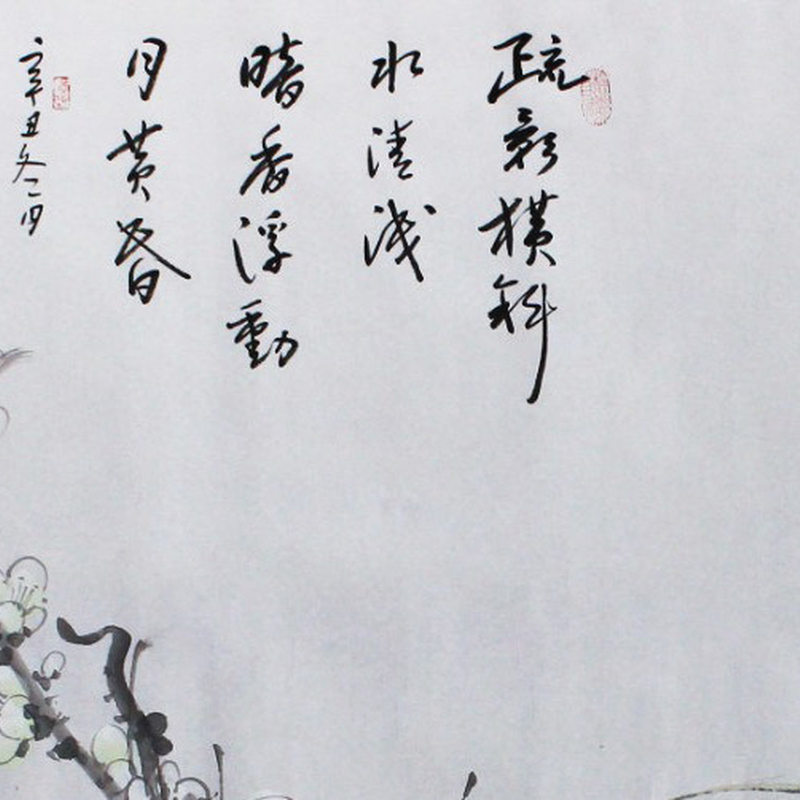 疏影横斜
水清浅
暗香浮動
月黄昏
辛丑冬一月